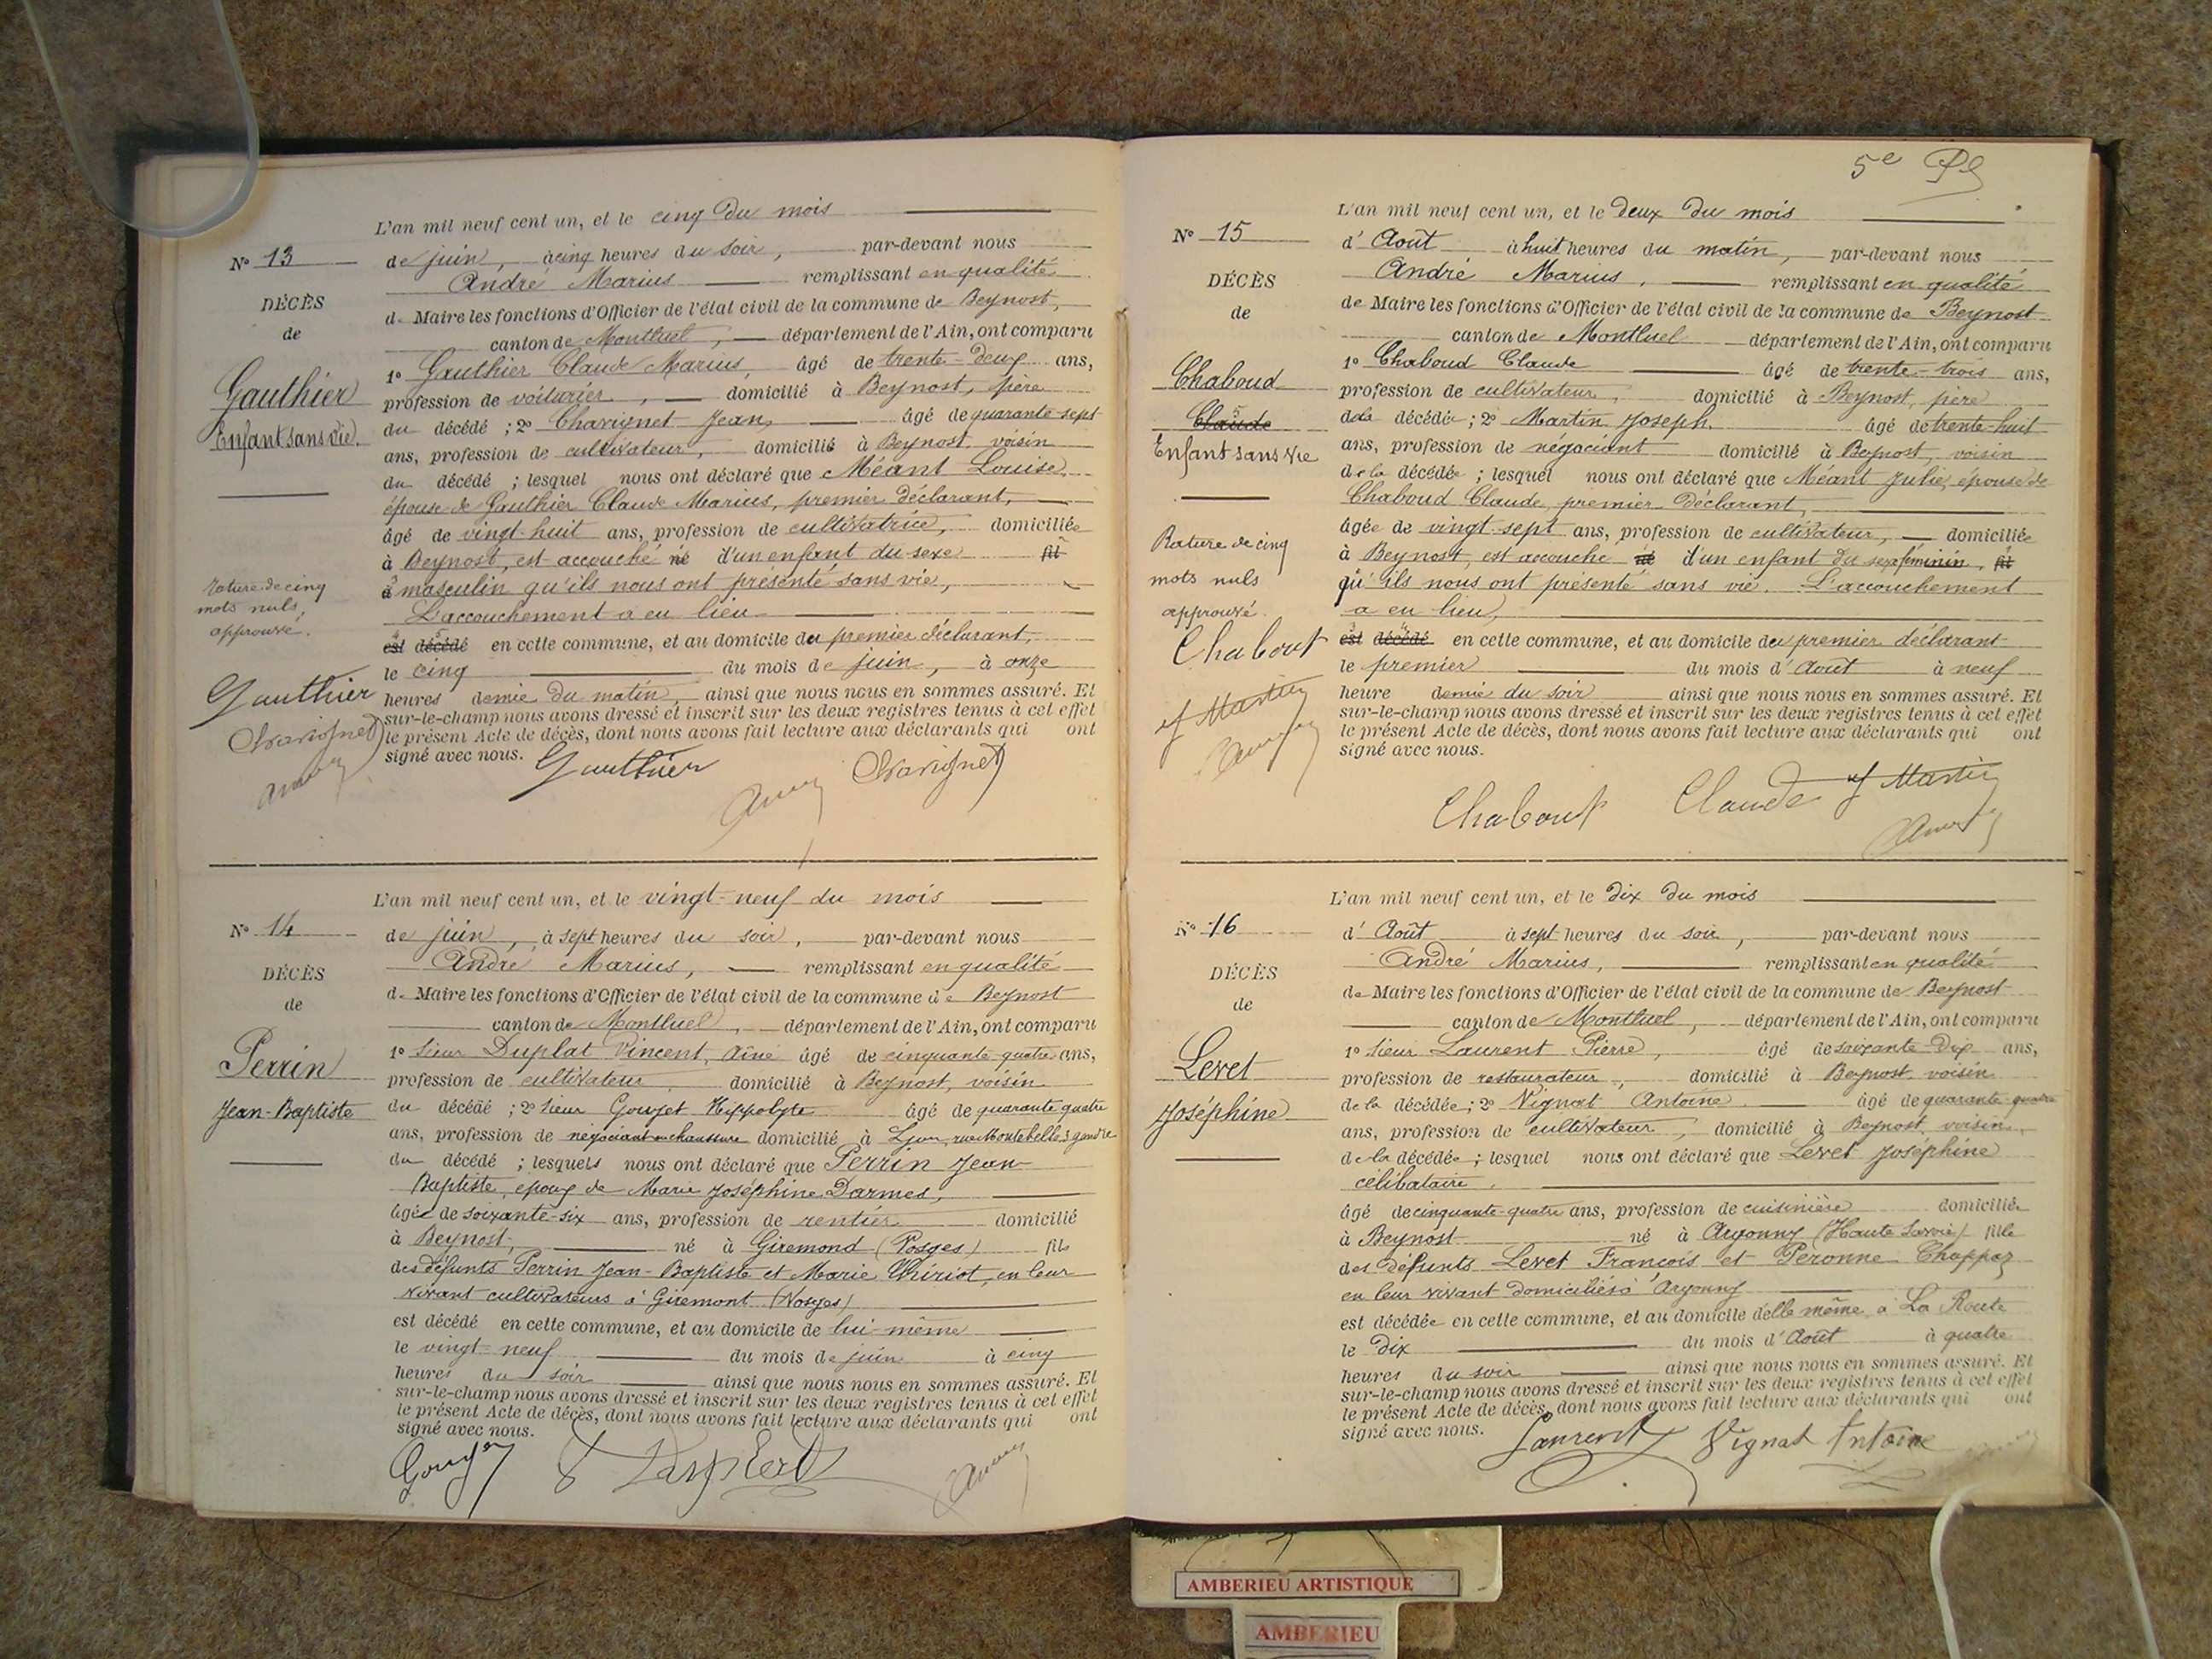 L'an mil neuf cent un, et le cinq du mois
N° 13
de juin, à cinq heures du soir, par-devant nous
André Marius remplissant en qualité
DÉCÈS
de Maire les fonctions d'Officier de l'état civil de la commune de Beynost,
de
canton de Montluel, département de l'Ain, ont comparu
1° Gauthier Claude Marius, âgé de trente-deux ans,
Gauthier
profession de voiturier, domicilié à Beynost, père
du décédé ; 2° Chavignet Jean, âgé de quarante-sept
Enfant sans vie.
ans, profession de cultivateur, domicilié à Beynost, voisin
du décédé ; lesquel nous ont déclaré que Méant Louise
épouse de Gauthier Claude Marius, premier déclarant,
âgé de vingt-huit ans, profession de cultivatrice, domiciliée
à Beynost, est accouché né d'un enfant du sexe fil
à masculin qu'ils nous ont présenté sans vie,
rature de cinq
mots nuls,
approuvé.
L'accouchement a eu lieu
est décédé en cette commune, et au domicile du premier déclarant,
le cinq du mois de juin, à onze
Gauthier
heures demie du matin, ainsi que nous nous en sommes assuré. Et
sur-le-champ nous avons dressé et inscrit sur les deux registres tenus à cet effet
Chavignet
le présent Acte de décès, dont nous avons fait lecture aux déclarants qui ont
signé avec nous.
Gauthier Chavignet
L'an mil neuf cent un, et le vingt-neuf du mois
N° 14
de juin, à sept heures du soir, par-devant nous
André Marius, remplissant en qualité
DÉCÈS
de Maire les fonctions d'Officier de l'état civil de la commune de Beynost
de
canton de Montluel, département de l'Ain, ont comparu
1° Sieur Duplat Vincent, aîné âgé de cinquante quatre ans,
Perrin
profession de cultivateur domicilié à Beynost, voisin
Jean-Baptiste
du décédé ; 2° Sieur Goujet Hippolyte âgé de quarante quatre
ans, profession de négociant en chaussure domicilié à Lyon, rue Montebello 3 gendre
du décédé ; lesquels nous ont déclaré que Perrin Jean
Baptiste, époux de Marie Joséphine Darmes,
âgée de soixante-six ans, profession de rentier domicilié
à Beynost, né à Giremond (Vosges) fils
des défunts Perrin Jean-Baptiste et Marie Thiriot, en leur
vivant cultivateurs à Giremont (Vosges)
est décédé en cette commune, et au domicile de lui-même
le vingt-neuf du mois de juin à cinq
heures du soir ainsi que nous nous en sommes assuré. Et
sur-le-champ nous avons dressé et inscrit sur les deux registres tenus à cet effet
le présent Acte de décès, dont nous avons fait lecture aux déclarants qui ont
signé avec nous.
5e
L'an mil neuf cent un, et le deux du mois
N° 15
d'Août à huit heures du matin, par-devant nous
André Marius, remplissant en qualité
DÉCÈS
de Maire les fonctions d'Officier de l'état civil de la commune de Beynost
de
canton de Montluel département de l'Ain, ont comparu
1° Chaboud Claude âgé de trente-trois ans,
Chaboud
profession de cultivateur, domicilié à Beynost, père
Claude
de la décédée ; 2° Martin Joseph. âgé de trente-huit
Enfant sans vie
ans, profession de négociant domicilié à Beynost, voisin
de la décédée ; lesquel nous ont déclaré que Méant Julie, épouse de
Chaboud Claude, premier déclarant,
âgée de vingt-sept ans, profession de cultivateur, domiciliée
Rature de cinq
mots nuls
approuvé.
à Beynost, est accouche né d'un enfant du sexe féminin, fil
qu'ils nous ont présenté sans vie. L'accouchement
a eu lieu,
Chabout
est décédé en cette commune, et au domicile du premier déclarant
le premier du mois d'Août à neuf
J Martin
heure demie du soir ainsi que nous nous en sommes assuré. Et
sur-le-champ nous avons dressé et inscrit sur les deux registres tenus à cet effet
le présent Acte de décès, dont nous avons fait lecture aux déclarants qui ont
signé avec nous.
Chabout Claude J Martin
L'an mil neuf cent un, et le dix du mois
N° 16
d'Août à sept heures du soir, par-devant nous
André Marius, remplissant en qualité
DÉCÈS
de Maire les fonctions d'Officier de l'état civil de la commune de Beynost
de
canton de Montluel, département de l'Ain, ont comparu
1° Sieur Laurent Pierre, âgé de soixante-dix ans,
Levet
profession de restaurateur, domicilié à Beynost voisin
Joséphine
de la décédée ; 2° Vignat Antoine âgé de quarante-quatre
ans, profession de cultivateur, domicilié à Beynost, voisin
de la décédée ; lesquel nous ont déclaré que Levet Joséphine
célibataire,
âgé de cinquante-quatre ans, profession de cuisinière domiciliée
à Beynost né à Argonny (Haute Savoie) fille
des défunts Levet François et Peronne Chappaz
en leur vivant domiciliés à Argonny
est décédée en cette commune, et au domicile d'elle même à La Route
le dix du mois d'Août à quatre
heures du soir ainsi que nous nous en sommes assuré. Et
sur-le-champ nous avons dressé et inscrit sur les deux registres tenus à cet effet
le présent Acte de décès, dont nous avons fait lecture aux déclarants qui ont
signé avec nous.
Laurent Vignat Antoine
AMBERIEU ARTISTIQUE
AMBERIEU